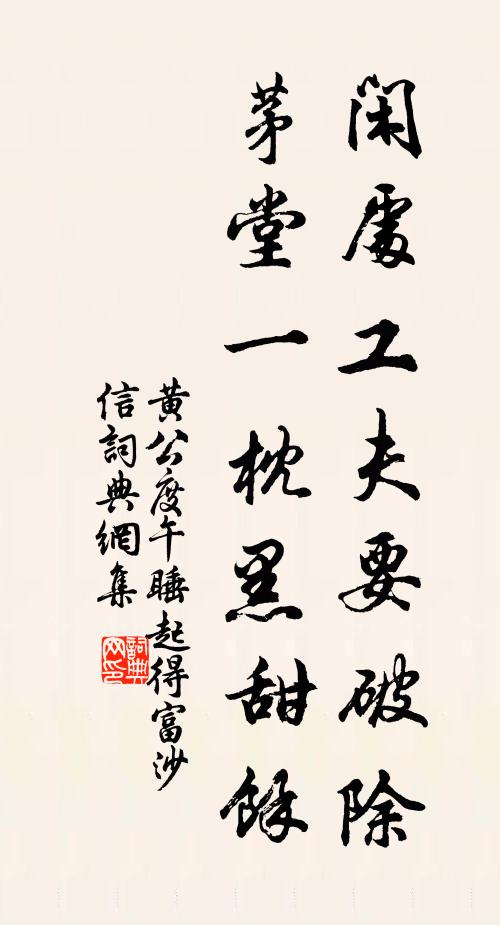 閑處工夫要破除
茅堂一枕黑甜餘
黃公度午睡起得富沙
信詞典網集
詞典網印